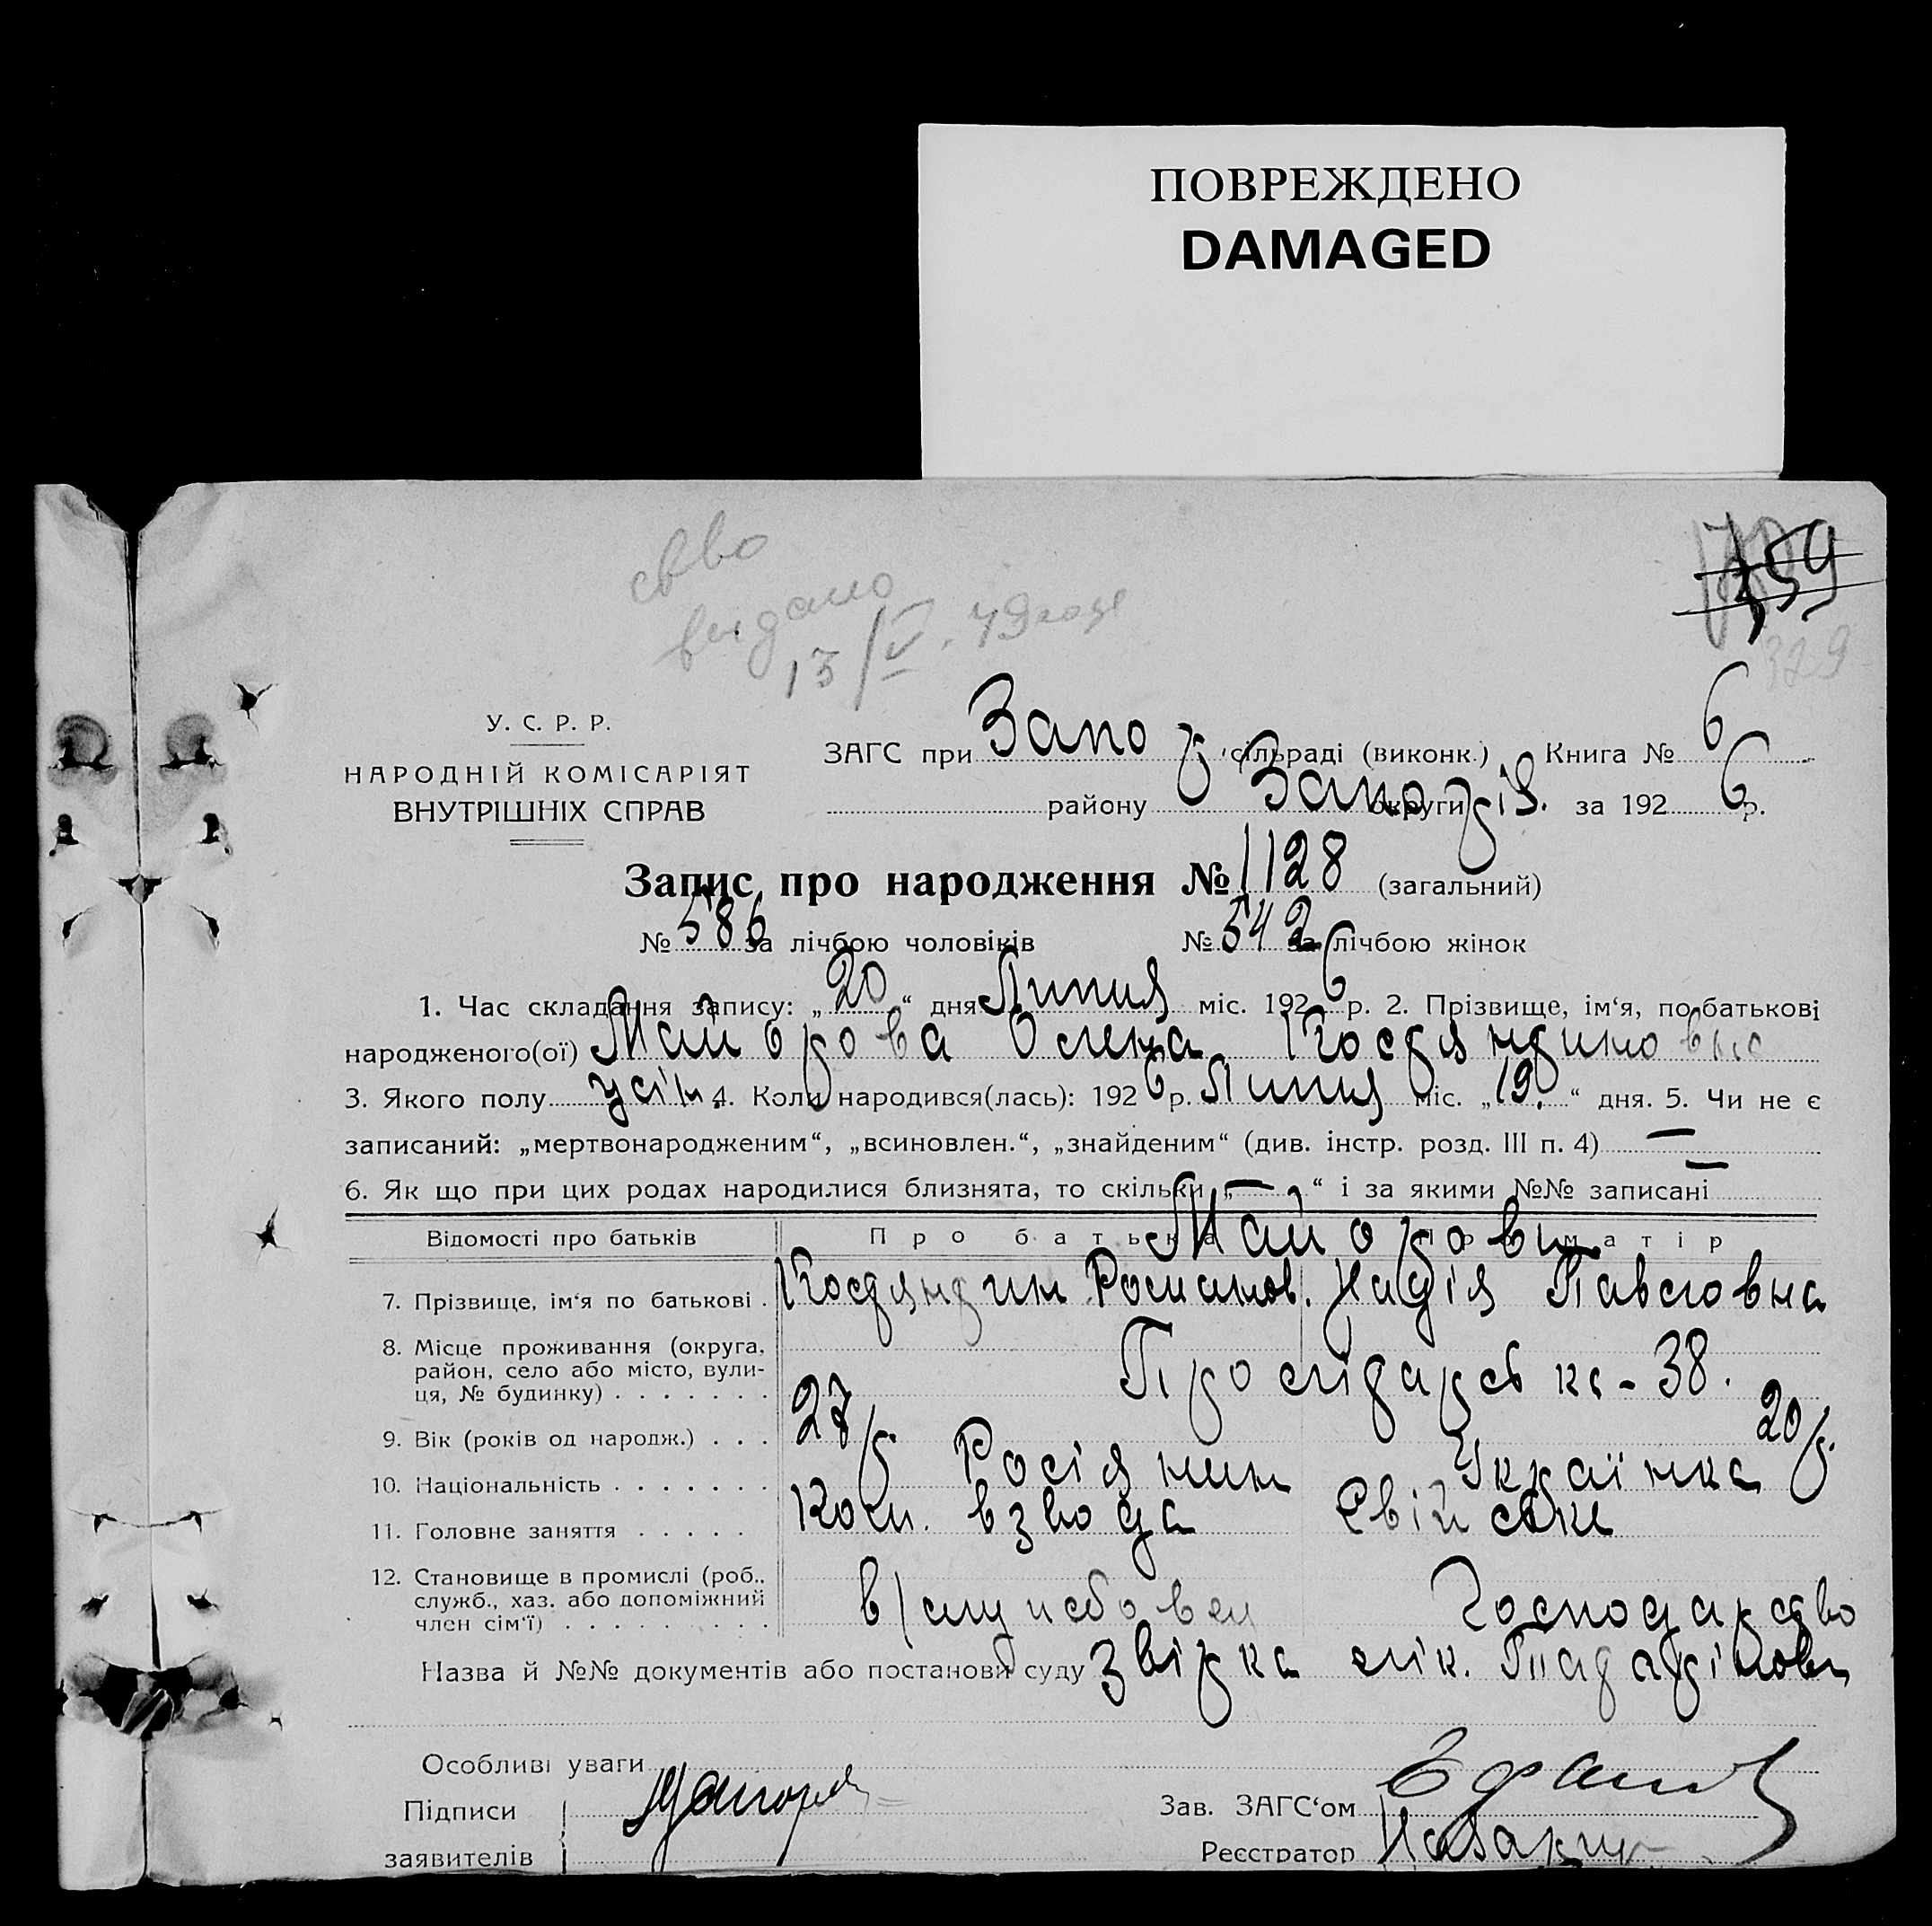 ПОВРЕЖДЕНО
DAMAGED
359
329
св-во
видано
13/V. 49 году
У. С. Р. Р.
НАРОДНІЙ КОМІСАРІЯТ
ВНУТРІШНІХ СПРАВ
ЗАГС при Запор сільраді (виконк.) Книга № 6
району Запоріз. округи за 1926 р.
Запис про народження № 1128 (загальний)
№ 586 за лічбою чоловіків № 542 за лічбою жінок
1. Час складання запису: „20“ дня Липня міс. 1926 р. 2. Прізвище, ім‘я, по батькові
народженого(ої) Майорова Олена Костянтиновна
3. Якого полу жін. 4. Коли народився(лась): 1926 р. Липня міс. „19.“ дня. 5. Чи не є
записаний: „мертвонародженим“, „всиновлен.“, „знайденим“ (див. інстр. розд. III п. 4) —
6. Як що при цих родах народилися близнята, то скільки „—“ і за якими №№ записані —
Відомості про батьків Про батька Про матір
Майорови
7. Прізвище, ім‘я по батькові . Костянтин Романов. Надія Павловна
8. Місце проживання (округа,
район, село або місто, вули-
ця, № будинку) . . . . . . . Пролідарська - 38.
9. Вік (років од народж.) . . . 27 р. 20 р.
10. Національність . . . . . . . Росіянин Українка
11. Головне заняття . . . . . Ком. взвода Свійське
12. Становище в промислі (роб.,
служб., хаз. або допоміжний
член сім‘ї) . . . . . . . . . в/службовец Господарство
Назва й №№ документів або постанови суду Звірка лік.
Особливі уваги
Підписи Зав. ЗАГС‘ом
заявителів Реєстратор